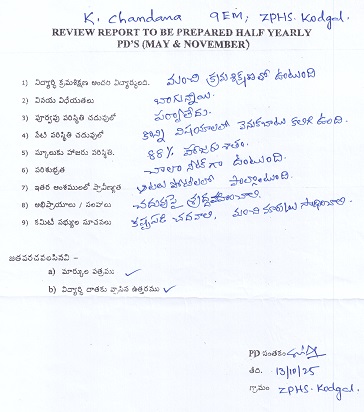 K. Chandana 9EM, ZPHS. Kodgal.
REVIEW REPORT TO BE PREPARED HALF YEARLY
PD'S (MAY & NOVEMBER)
1) విద్యార్థి క్రమశిక్షణ అంచరి విద్యార్థులది. మంచి క్రమశిక్షణతో ఉంటుంది
2) వినయ విధేయతలు బాగున్నాయి.
3) పూర్వపు పరిస్థితి చదువులో పర్వాలేదు.
4) నేటి పరిస్థితి చదువులో కొన్ని విషయాలలో వెనుకబాటు కలిగి ఉంది.
5) స్కూలుకు హాజరు పరిస్థితి. 88% హాజరు శాతం.
6) పరిశుభ్రత చాలా నీట్ గా ఉంటుంది.
7) ఇతర అంశములలో ప్రావీణ్యత ఆటల పోటీలలో పాల్గొంటుంది.
8) అభిప్రాయాలు / సలహాలు చదువుపై శ్రద్ధ వహించాలి.
9) కమిటి సభ్యుల సూచనలు కష్టపడి చదవాలి. మంచి మార్కులు సాధించాలి.
జతపరచవలసినవి -
a) మార్కుల పత్రము ✓
b) విద్యార్థి దాతకు వ్రాసిన ఉత్తరము ✓
PD సంతకం
తేది. 13/10/25
గ్రామం ZPHS. Kodgal.